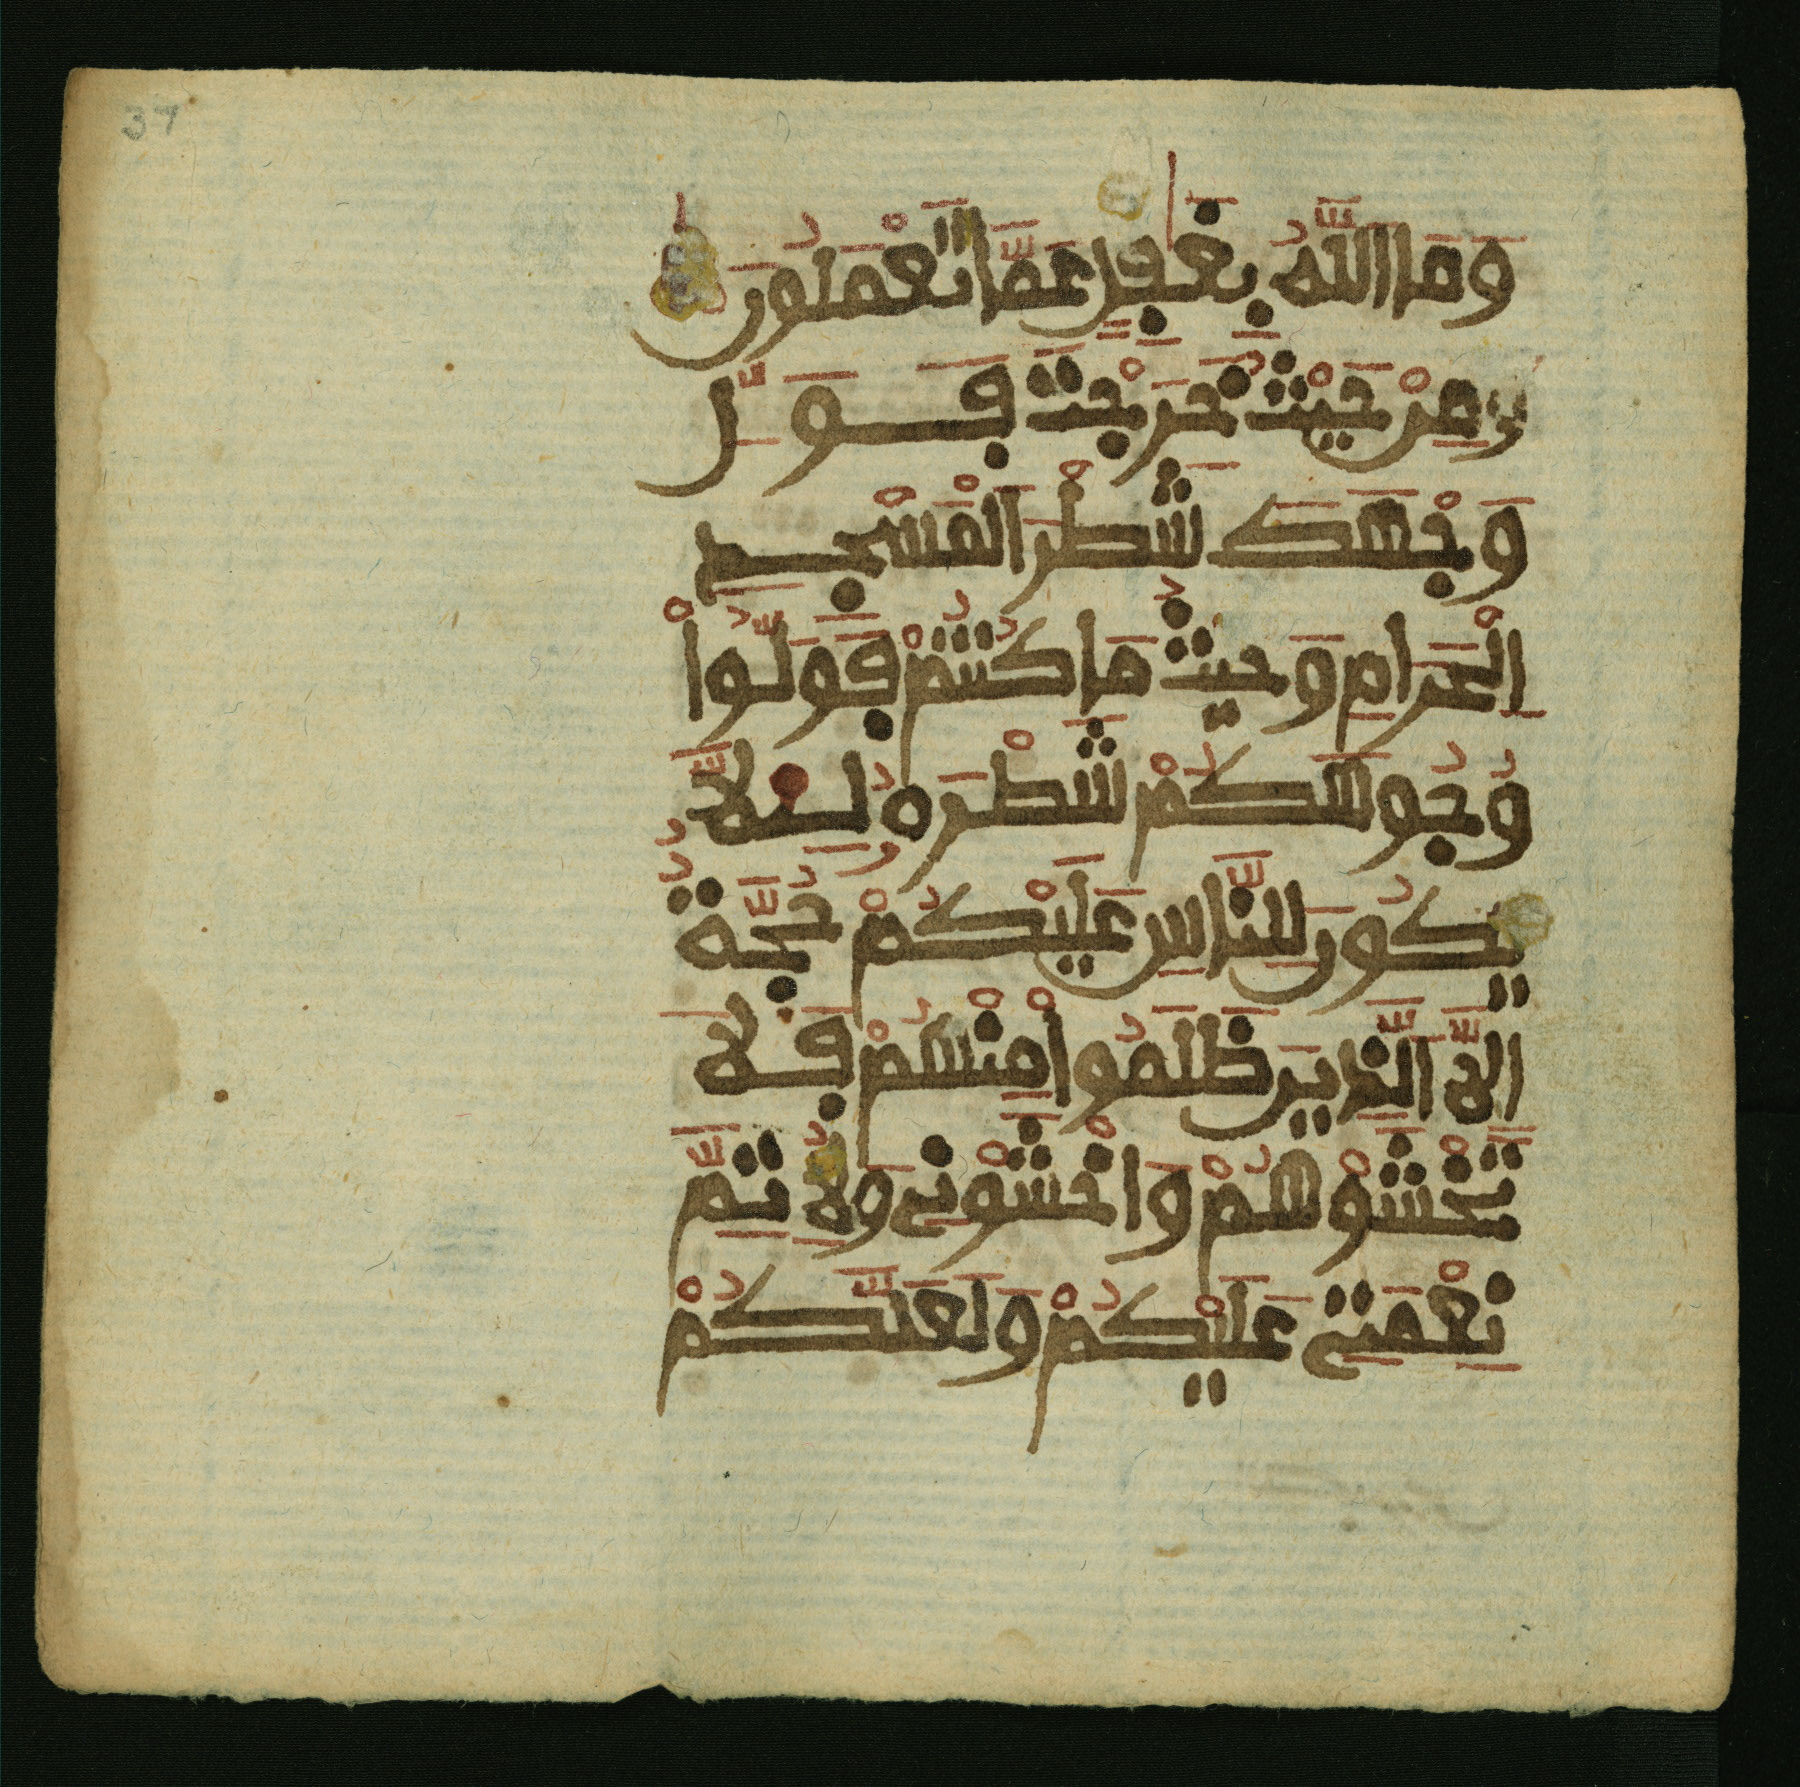 37
وَمَا اَللَّهُ بِغَٰفِلٍ عَمَّا تَعْمَلُونَ
وَمِنْ حَيْثُ خَرَجْتَ فَوَلِّ
وَجْهَكَ شَطْرَ اَلْمَسْجِدِ
اِلْحَرَامِ وَحَيْثُ مَا كُنتُمْ فَوَلُّواْ
وُجُوهَكُمْ شَطْرَهُۥ لِئَلَّا
يَكُونَ لِلنَّاسِ عَلَيْكُمْ حُجَّةٌ
اِلَّا اَلَّذِينَ ظَلَمُواْ مِنْهُمْ فَلَا
تَخْشَوْهُمْ وَاخْشَوْنِي وَلِأُتِمَّ
نِعْمَتِي عَلَيْكُمْ وَلَعَلَّكُمْ